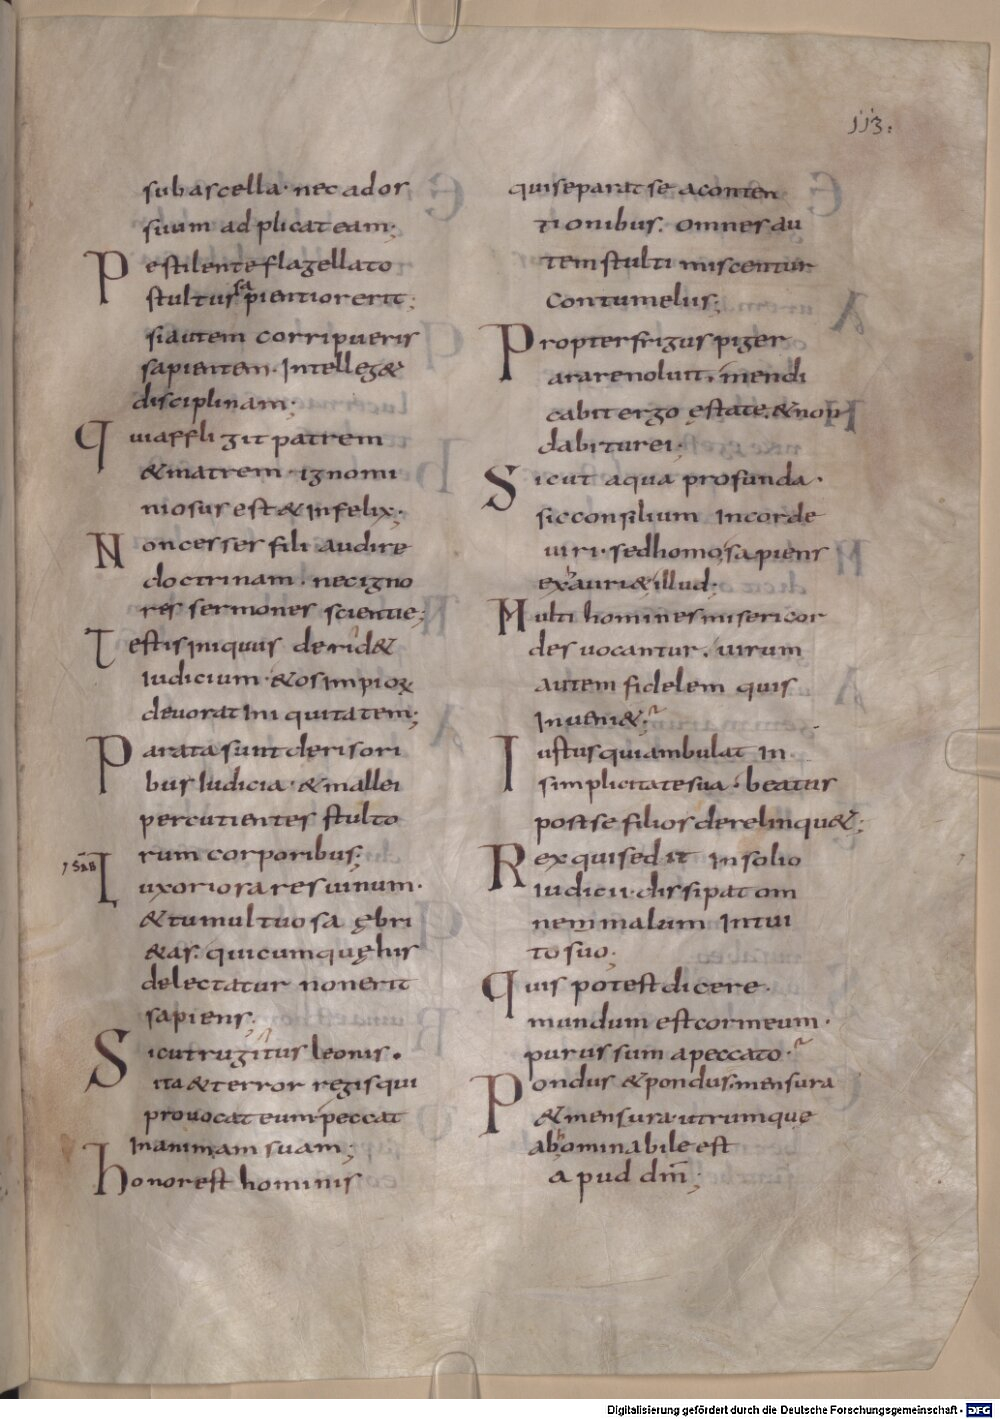 113.
sub ascella · nec ad os
suum ad plicat eam ;
Pestilente flagellato
stultus sapientior erit ;
si autem corripueris
sapientem · Intelleg&
disciplinam ;
Qui affligit patrem
& matrem · ignomi
niosus est & Infelix ;
Non cesses fili audire
doctrinam . nec igno
res sermones scientiae ;
Testis iniquus derid&
Iudicium · & os Impioꝝ
devorat Iniquitatem ;
Parata sunt derisori
bus Iudicia · & mallei
percutientes stulto
rum corporibus ;
Luxoriosa res vinum ·
& tumultuosa ębri
&as · quicumquę his
delectatur non erit
sapiens ;
Sicut rugitus leonis .
ita & terror regis qui
provocat eum peccat
In animam suam ;
honor est hominis
qui separat se a conten
tionibus . omnes au
tem stulti miscentur
contumeliis ;
Propter frigus piger
arare noluit . mendi
cabit ergo ęstate . & non
dabitur ei ;
Sicut aqua profunda ·
sic consilium In corde
uiri · sed homo sapiens
exauri& illud ;
Multi homines misericor
des uocantur . uirum
autem fidelem quis
Inueni& ;
Iustus qui ambulat In
simplicitate sua · beatus
post se filios derelinqu& ;
Rex qui sed it In solio
Iudicii · dissipat om
nem malum Intui
to suo ;
Quis potest dicere ·
mundum est cor meum ·
purus sum a peccato ·
Pondus & pondus · mensura
& mensura · utrumque
abominabile est
apud dm̄ ;
Digitalisierung gefördert durch die Deutsche Forschungsgemeinschaft - DFG